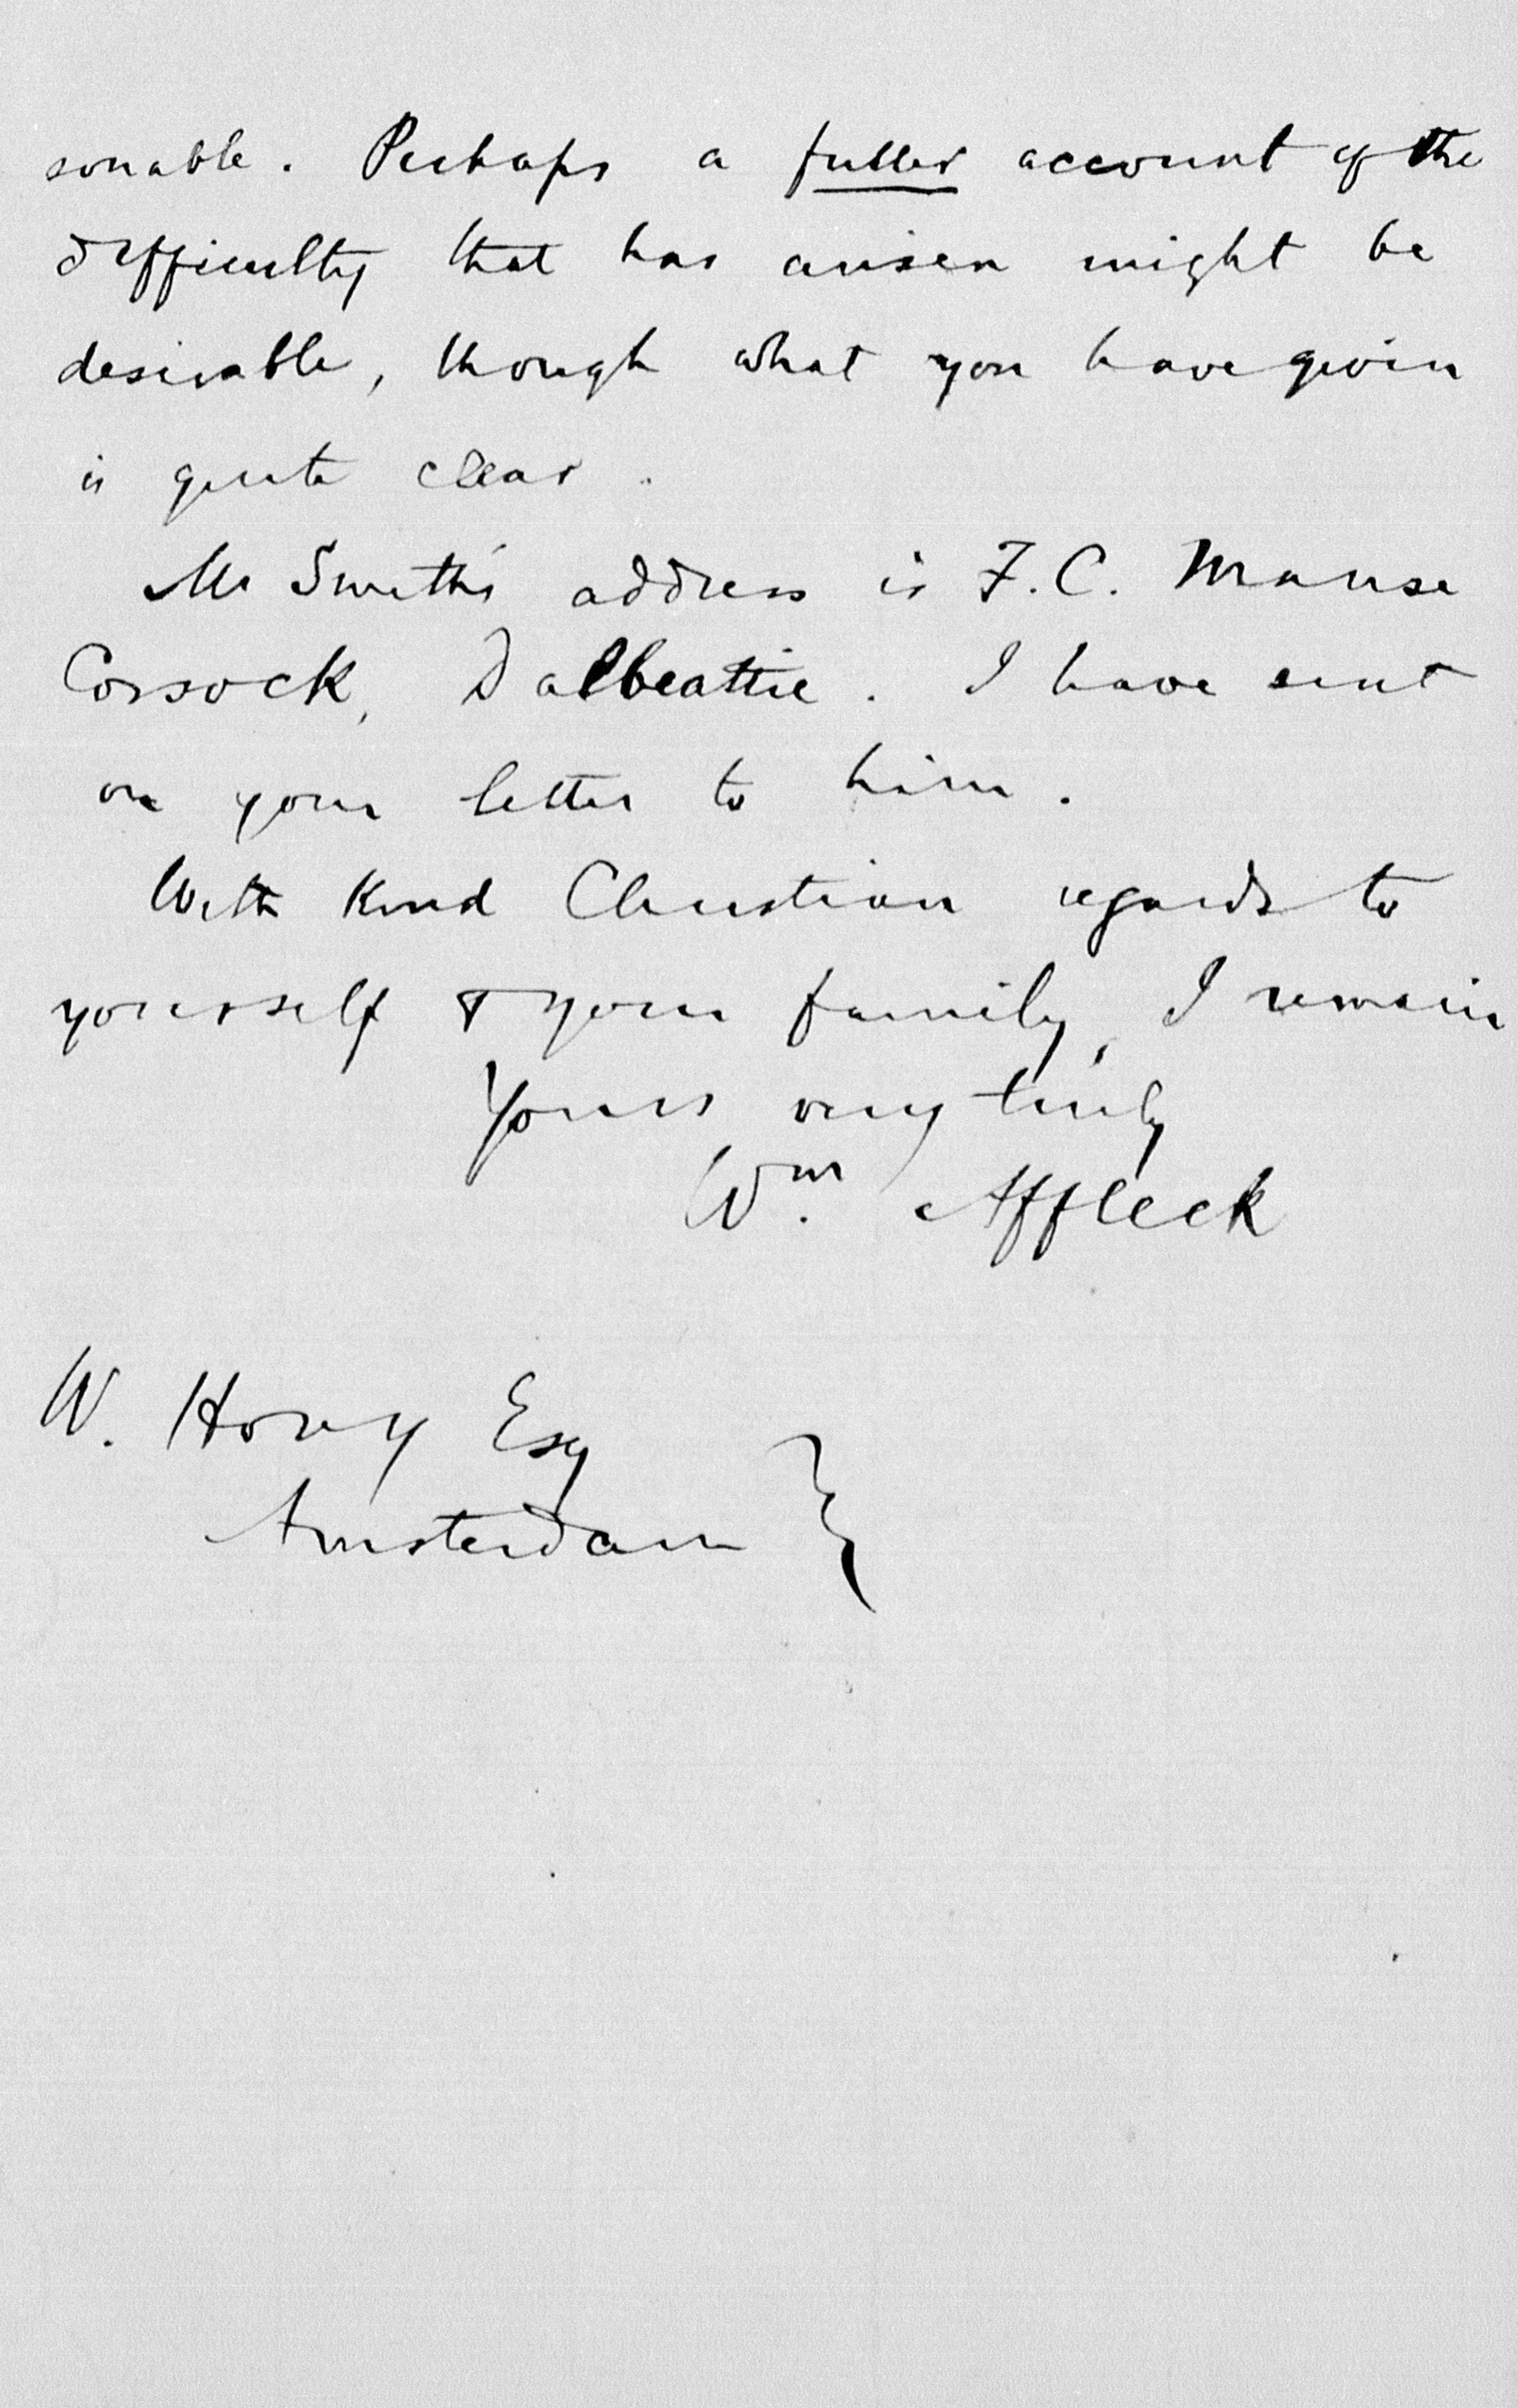 sonable. Perhaps a fuller account of the
difficulty that has arisen might be
desirable, though what you have given
is quite clear.
Mr Smith's address is F.C. Manse
Corsock, Dalbeattie. I have sent
on your letter to him.
With Kind Christian regards to
yourself & your family, I remain
Yours very truly
Wm. Affleck
W. Hovy Esq
Amsterdam }